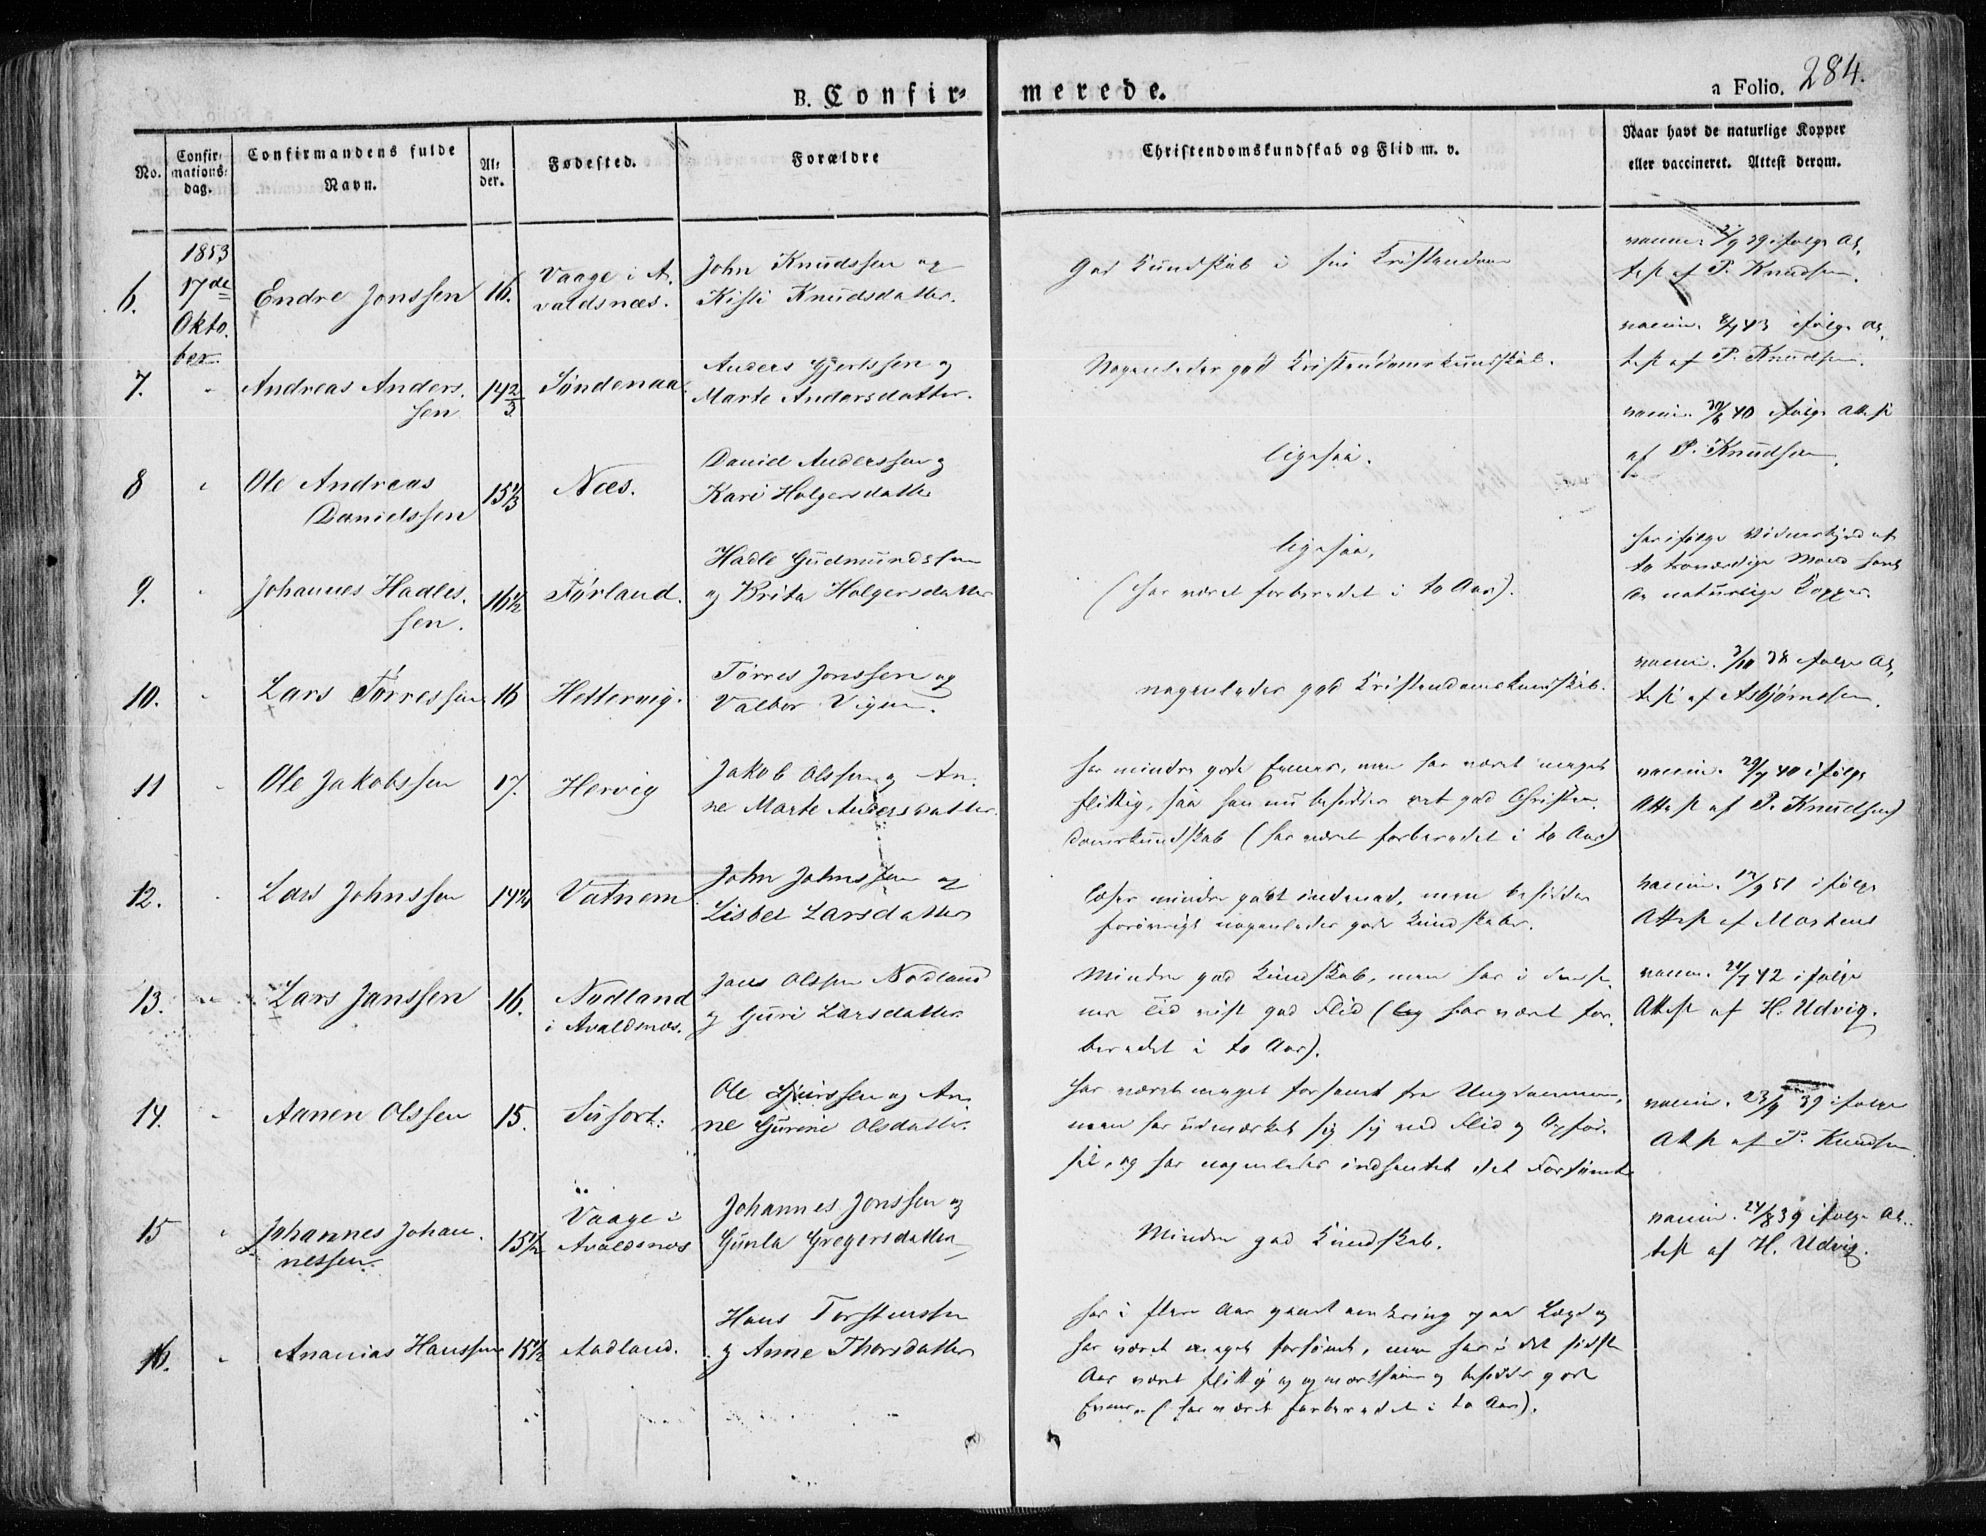 B. Confirmerede.
a Folio. 284.
No.
Confirmationsdag.
Confirmandens fulde Navn.
Alder.
Fødested.
Forældre
Christendomskundskab og Flid m. v.
Naar havt de naturlige Kopper
eller vaccineret. Attest derom.
1853
17de
Okto.
ber.
6.
Endre Jonssen
16.
Vaage i A.
valdsnæs.
John Knudssen og
Kisti Knudsdatter.
God Kundskab i sin Kristendom
39 ifølge At.
test af P. Knudsen.
7.
Andreas Anders.
sen
14 2/3
Søndenaa.
Anders Gjertssen og
Marte Andersdatter.
Nogenledes god Kristendomskundskab.
vaccin. 8/9 43 ifølge At.
test af P. Knudsen.
8
Ole Andreas
Danielssen
15 1/3
Næs.
Daniel Anderssen og
Kari Holgersdatter
ligesaa.
40 ifølge Attest
af P. Knudsen.
9.
Johannes Hadles.
sen.
16 1/2
Førland.
Hadle Gudmundssen
og Brita Holgersdatter
ligesaa,
(har været forberedet i to Aar).
har ifølge Vidnesbyrd af
to troværdige Mænd havt
de naturlige Kopper.
10.
Lars Tørressen
16
Hettervig.
Tørres Jonssen og
Valbor Vigsn.
nogenledes god Kristendomskundskab.
vaccin. 3/10 38 ifølge At.
test af Asbjørnsen.
11
Ole Jakobssen
17.
Hervig
Jakob Olssen og An.
ne Marte Andersdatter.
har mindre gode Evner, men har været meget
flittig, saa han nu besidder ret god Christen.
domskundskab (har været forberedet i to Aar)
vaccin. 29/9 40 ifølge
Attest af P. Knudsen
12.
Lars Johnssen
14 1/2
Vatnem
John Johnssen og
Lisbet Larsdatter
læser mindre godt indenad, men besidder
forøvrigt nogenledes gode Kundskaber.
vaccin. 17/9 51 ifølge
Attest af Mortens
13.
Lars Janssen
16.
Nodland
i Avaldsnæs.
Jans Olssen Nodland
og Guri Larsdatter
Mindre god Kundskab, men har i den se.
nere Tid vist god Flid (har været for.
beredet i to Aar).
42 ifølge
Attest af H. Udvig.
14.
Aanen Olssen
15.
Ole Sjurssen og An.
ne Gurine Olsdatter.
har været meget forsømt fra Ungdommen,
men har udmærket sig ved Flid og Opfør.
sel, og har nogenledes indhentet det Forsømte
vaccin. 23/9 39 ifølge
Attest af P. Knudsen
15
Johannes Johan.
nessen
15 1/2
Vaage i
Avaldsnæs
Johannes Jonssen og
Gunla Gregersdatter
Mindre god Kundskab.
vaccin. 24/8 39 ifølge At.
test af H. Udvig.
16.
Ananias Hanssen
15 1/2
Aadland.
Hans Torstenssen
og Anne Thorsdatter
har i flere Aar gaaet omkring paa Lægd og
har været meget forsømt, men har i det sidste
Aar været flittig og opmærksom og besidder gode
Evner. (har været forberedet i to Aar).